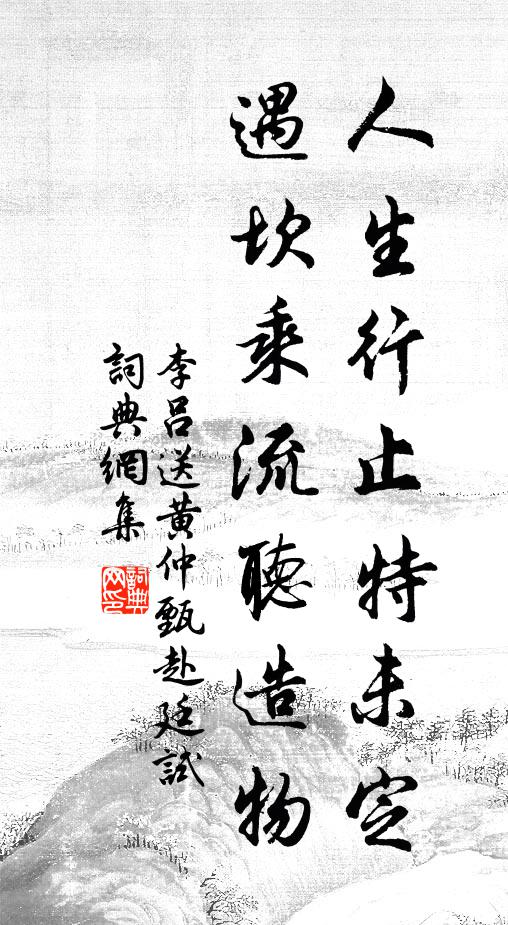 人生行止特未定
遇坎乘流聽造物
李呂送黃仲甄赴廷試
詞典網集
詞典
网印